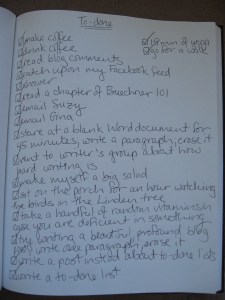 To-done
make coffee
drink coffee
read blog comments
catch up on my Facebook feed
shower
read a chapter of Buechner 101
email Suzy
email Gina
stare at a blank Word document for
45 minutes, write a paragraph, erase it
vent to writer's group about how
hard writing is
make myself a big salad
sit on the porch for an hour watching
the birds in the linden tree
take a handful of random vitamins in
case you are deficient in something
try writing a beautiful, profound blog
post, write one paragraph, erase it
write a post instead about to-done lists
write a to-done list
15 min of yoga
go for a walk